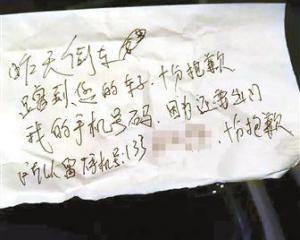 昨天倒车
到您的车,十分抱歉
我的手机号码.因为还要出门
所以留手机号:13 十分抱歉